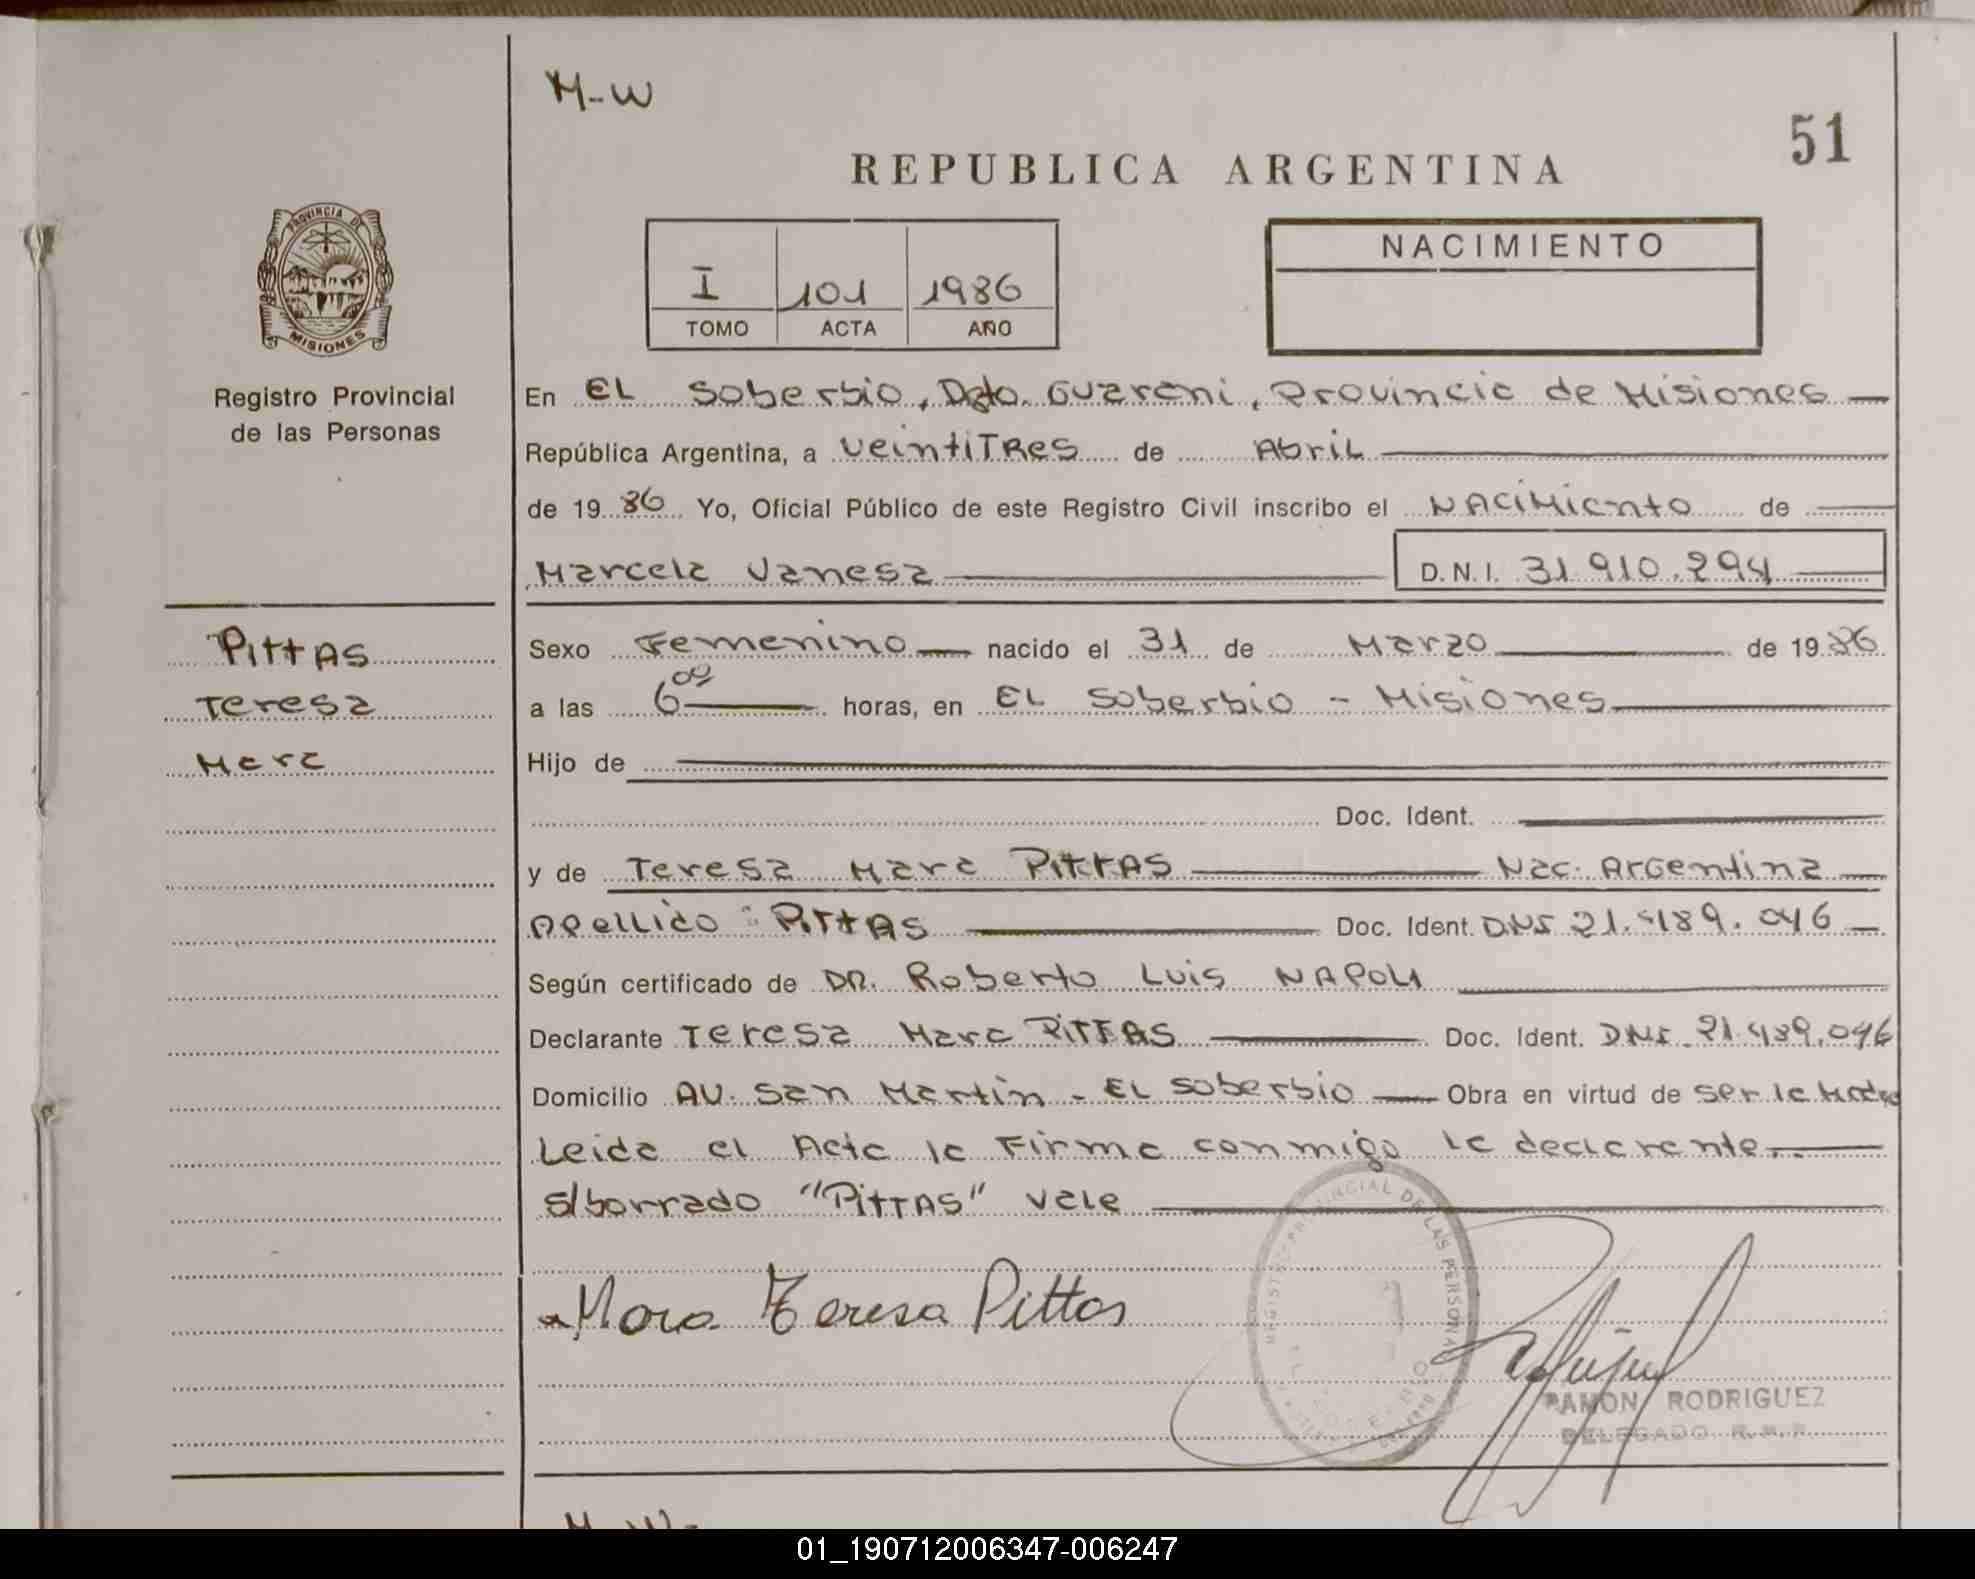 M-W
51
REPUBLICA ARGENTINA
PROVINCIA DE
MISIONES
I 101 1986
TOMO ACTA AÑO
NACIMIENTO
Registro Provincial
de las Personas
En EL Soberbio, Dpto. Guarani, Provincia de Misiones
República Argentina, a VeintiTRes de Abril
de 1986 Yo, Oficial Público de este Registro Civil inscribo el NACiMiento de
Marcela Vanesa D.N.I. 31.910.294
PittAS
Teresa
Mara
Sexo Femenino nacido el 31 de Marzo de 1986
a las 6 00 horas, en EL Soberbio - Misiones
Hijo de
Doc. Ident.
y de Teresa Mara PittAS Nac. Argentina
Apellido : PittAS Doc. Ident. DNI 21.489.046
Según certificado de DR. Roberto Luis NAPOLI
Declarante Teresa Mara PITTAS Doc. Ident. DNI. 21.489.046
Domicilio AV. San Martin - EL Soberbio Obra en virtud de ser la Madre
Leida el Acta la Firma conmigo la declarante.
s/borrado "PittAS" Vale
Mora Teresa Pittas
REGISTRO PROVINCIAL DE LAS PERSONAS
RAMON RODRIGUEZ
DELEGADO R.P.P.
M-W-
01_190712006347-006247